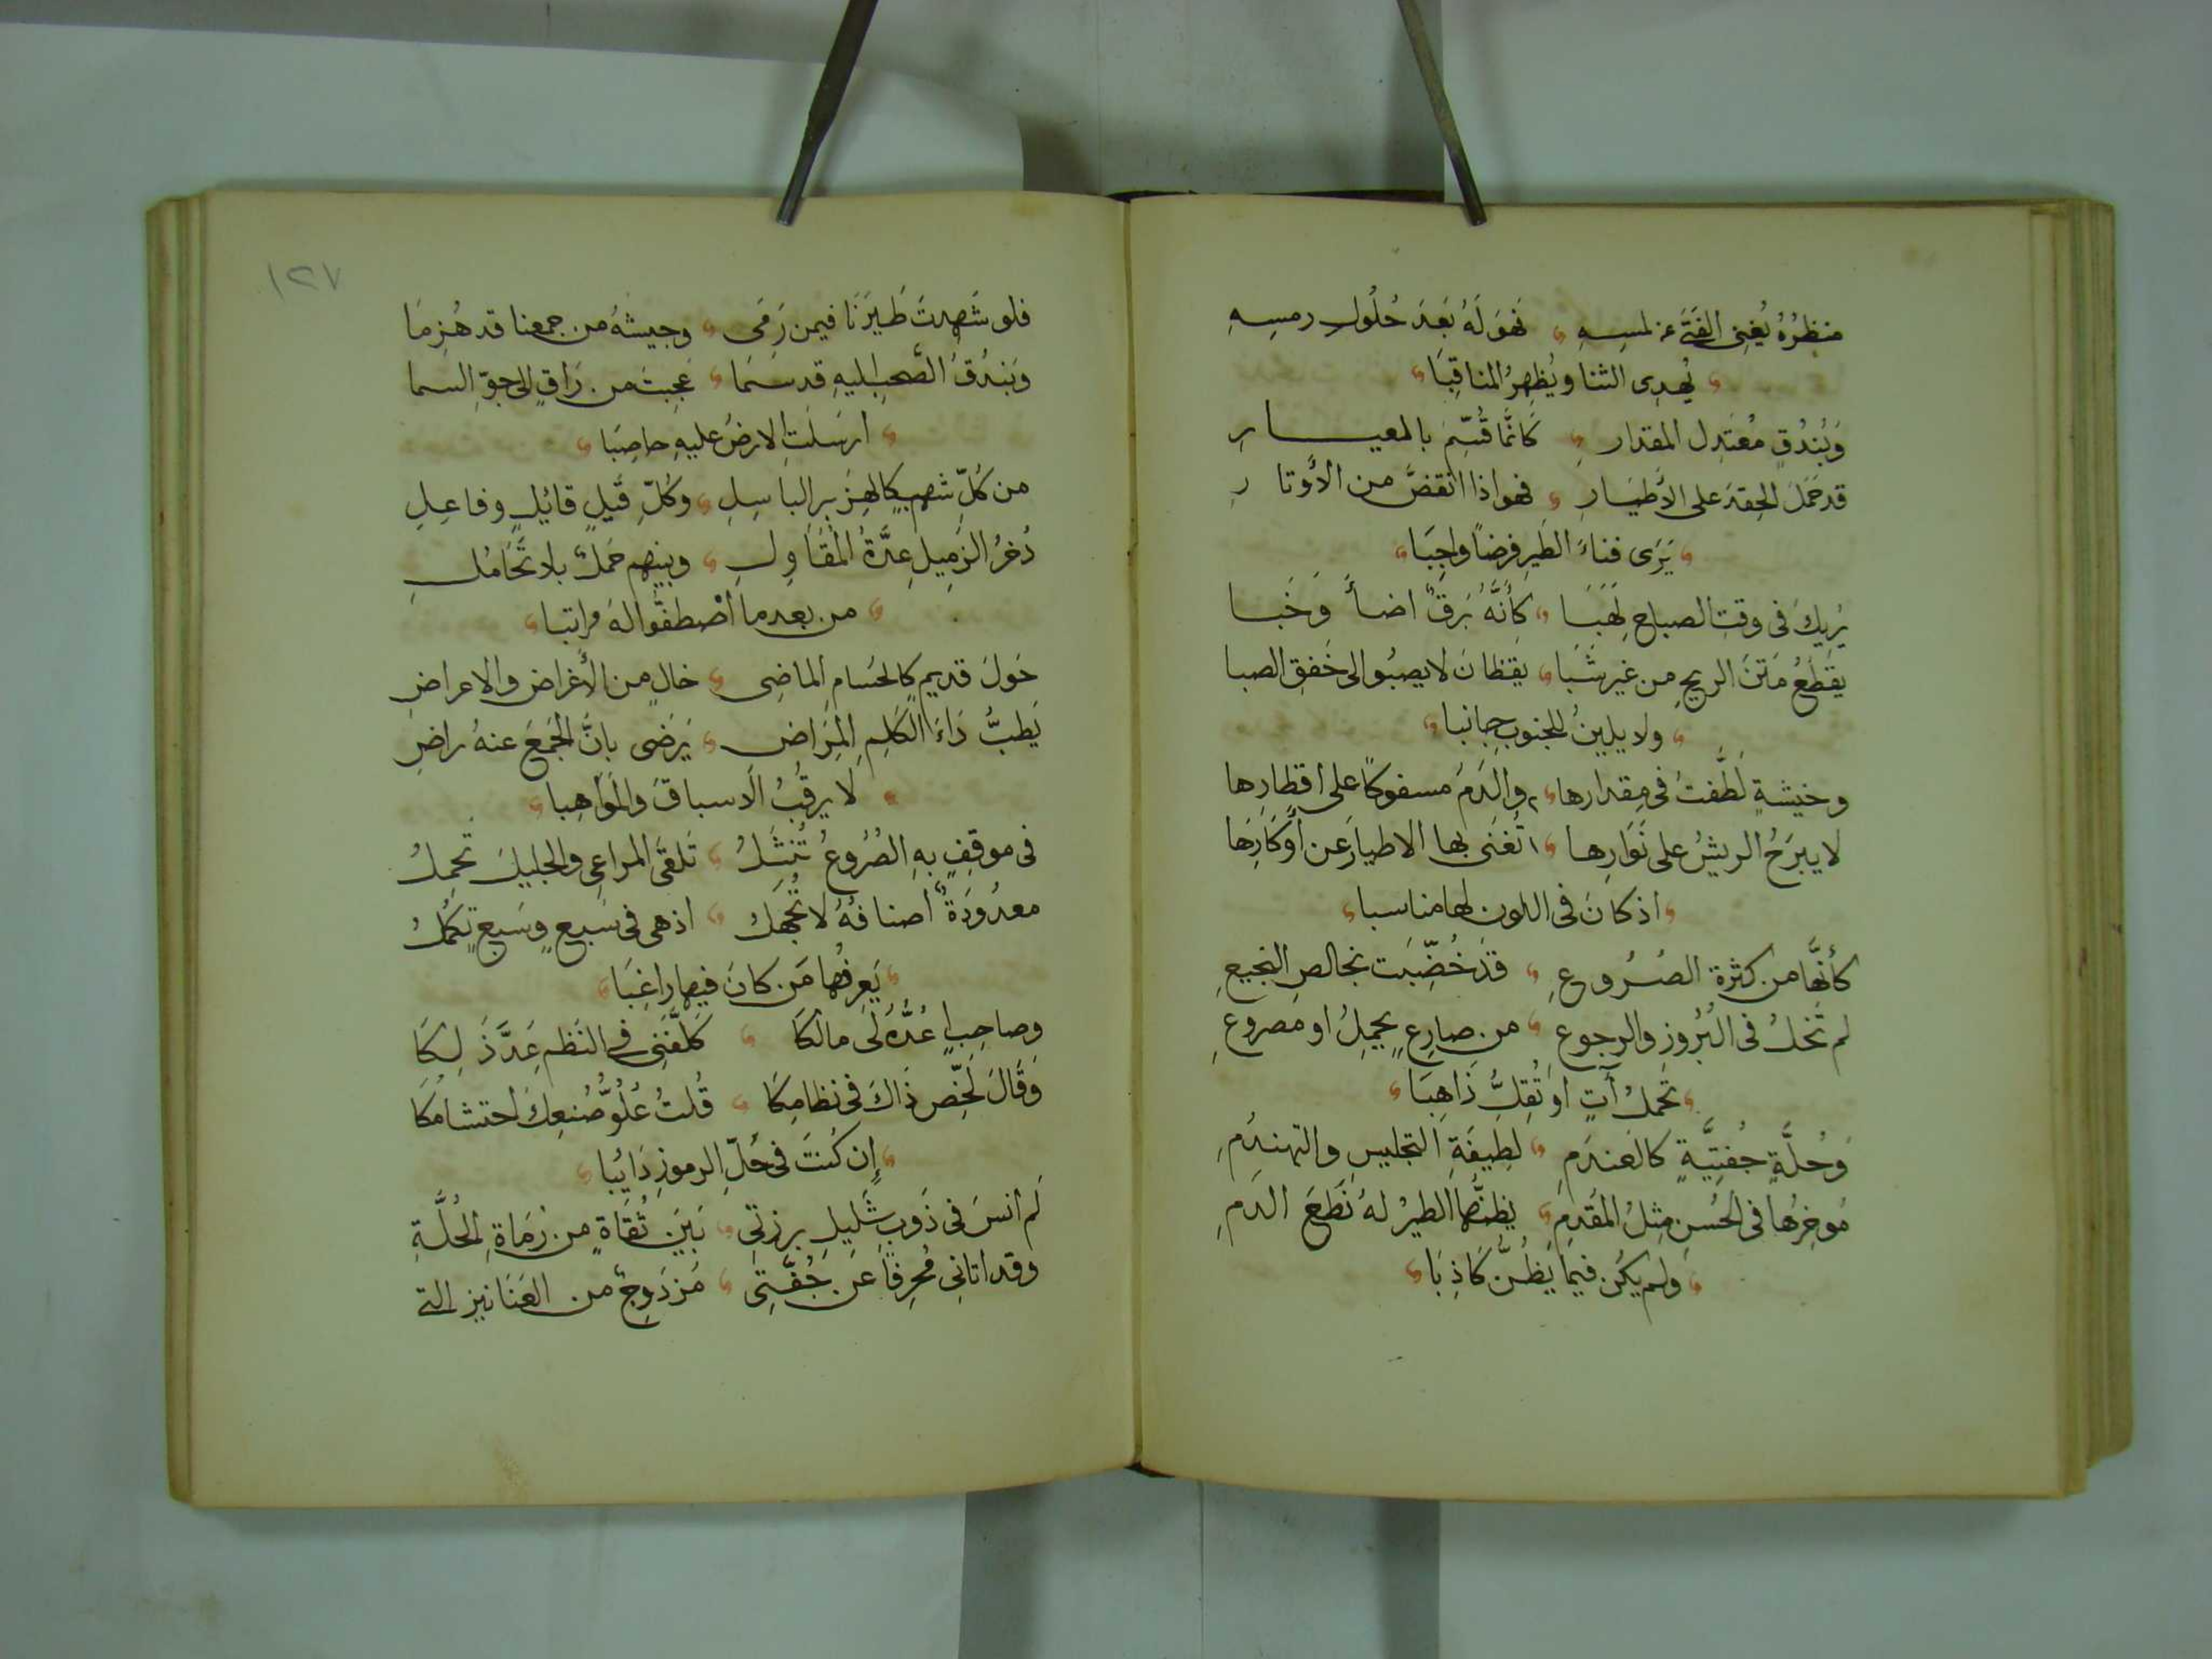 منظرُهُ يُغنِى الفَتَى عن لمسِهِ فهوَ لَهُ بَعدَ حُلُولِ رمسِهِ
يُهدِى الثنا ويُظهِرُ المناقِبَا
وَبُندُقٍ مُعتَدِلِ المقدارِ كَانَّما قُسِّمَ بالمعيارِ
قد حَمَلَ الحِقدَ على الأَطيَارِ فهو اذا انقضَّ من الأَوتارِ
يَرَى فناءَ الطَيرِ فرضاً واجِبَا
يُرِيكَ فى وقتِ الصباحِ لهَبَا كأَنَّهُ بَرقٌ اضأَ وَخَبا
يقطَعُ مَتنَ الريحِ مِن غيرِ شَبَا يقظانَ لا يصبُوا الى خَفقِ الصبا
ولا يلينُ للجنوبِ جانبا
وخيشةٍ لَطُفَت فى مِقدارها والدَمُ مسفوكاً على أقطارِها
لا يبرَحُ الريشُ على نَوَارِها تُغنَى بها الاطيارَ عن أَوكَارِهَا
اذ كانَ فى اللون لها مناسبا
كأنَّها من كثرة الصُرُوعِ قد خُضِّبَت بخالصِ النجيعِ
لم تَخلُ فى البُرُوز والرجوعِ من صارِعٍ يجمِلُ او مصروعِ
تَحملُ آتٍ او تُقِلُّ ذَاهِبَا
وَحُلَّةٍ جُفتِيَّةٍ كالعَندَمِ لطِيفَةِ التجليسِ والتهندُمِ
مُوخِرُها فى الحُسنِ مِثلُ المُقدِمِ يظنُّها الطيرُ لهُ نَطعَ الدَمِ
ولم يكُن فيما يَظُنُّ كَاذِبَا
١٢٧
فلو شَهِدتَ طَيرَنَا فيمن رَمَى وجيشهُ من جمعنا قد هُزِمَا
وَبَندُقُ الصَّحبِ اليهِ قد سمَا عَجِبتَ من رَاقٍ الى جوِّ السما
ارسَلَتِ الارضُ عليهِ حاصِبَا
من كُلِّ شهمٍ كالهِزَبرِ الباسِلِ وكُلِّ قَيلٍ قائلٍ وفاعِلِ
ذُخرُ الزَمِيلِ عِدَّةُ المُقَاوِلِ وبينهم حَملٌ بلا تَحَامُلِ
من بعد ما اصْطفُّوا لهُ مراتبا
حَولَ قديمٍ كالحُسامِ الماضِى خالٍ من الأَغراض والاعراضِ
يَطِبُّ دَاءَ الكَلِمِ المِرَاضِ يَرضَى بانَّ الجَمعَ عنهُ راضِ
لا يرقُبُ الاسباقَ والمَوَاهِبا
فى موقفٍ بهِ الصُرُوعُ تُنشَلُ تَلقى المراعِى والجليلَ تحمِلُ
معدُودَةٌ أصنافهُ لا تُجهَلُ اذ هى فى سَبعٍ وسَبعٍ تكمُلُ
يَعرِفُها مَن كانَ فيها راغِبَا
وصاحِبٍ عُدَّ لى مالكا كَلَّفَنِى فى النَظمِ عَدَّ ذَلِكَا
وَقَالَ لَخِّص ذَاكَ فى نظامِكَا قُلتُ عُلُوُّ صُنعِكَ احتشامُكَا
إن كُنتَ فى حَلِّ الرموزِ دَايُبا
لَم أنسَ فى ذَوبِ شَلِيلِ برزتِى بَينَ ثُقَاةٍ من رُمَاةِ الحُلَّةِ
وقد اتانِى مُحرِفاً عَن جُفَّتِى مُزدَوِجٌ من العَنَانيز التى